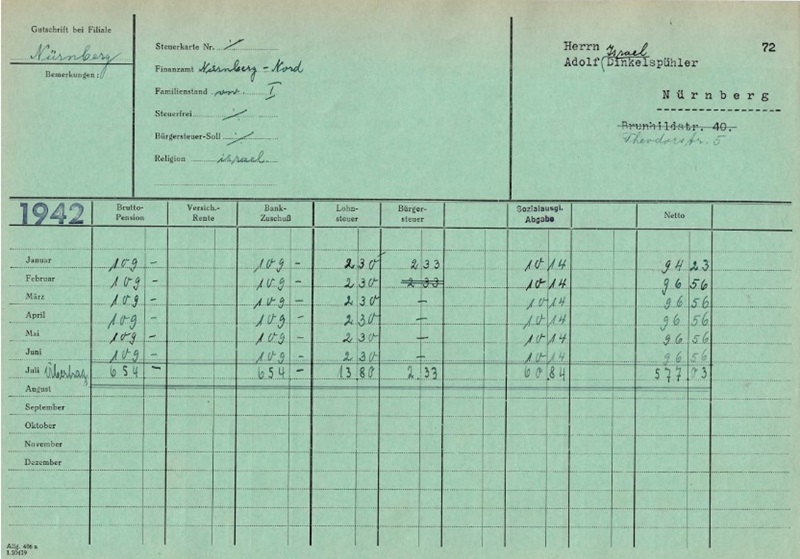 Gutschrift bei Filiale
Nürnberg
Bemerkungen:
Steuerkarte Nr. ./.
Finanzamt Nürnberg-Nord
Familienstand I
Steuerfrei ./.
Bürgersteuer-Soll ./.
Religion israel.
Israel
Herrn 72
Adolf Dinkelspühler
Nürnberg
Brunhildstr. 40.
Theodorstr. 5
1942 Brutto-Pension Versich.-Rente Bank-Zuschuß Lohn-steuer Bürger-steuer Sozialausgl. Abgabe Netto
Januar 109 - 109 - 2 30 2 33 10 14 94 23
Februar 109 - 109 - 2 30 2 33 10 14 96 56
März 109 - 109 - 2 30 - 10 14 96 56
April 109 - 109 - 2 30 - 10 14 96 56
Mai 109 - 109 - 2 30 - 10 14 96 56
Juni 109 - 109 - 2 30 - 10 14 96 56
Juli Übertrag 654 - 654 - 13 80 2 33 60 84 577 03
August
September
Oktober
November
Dezember
Allg. 406 a